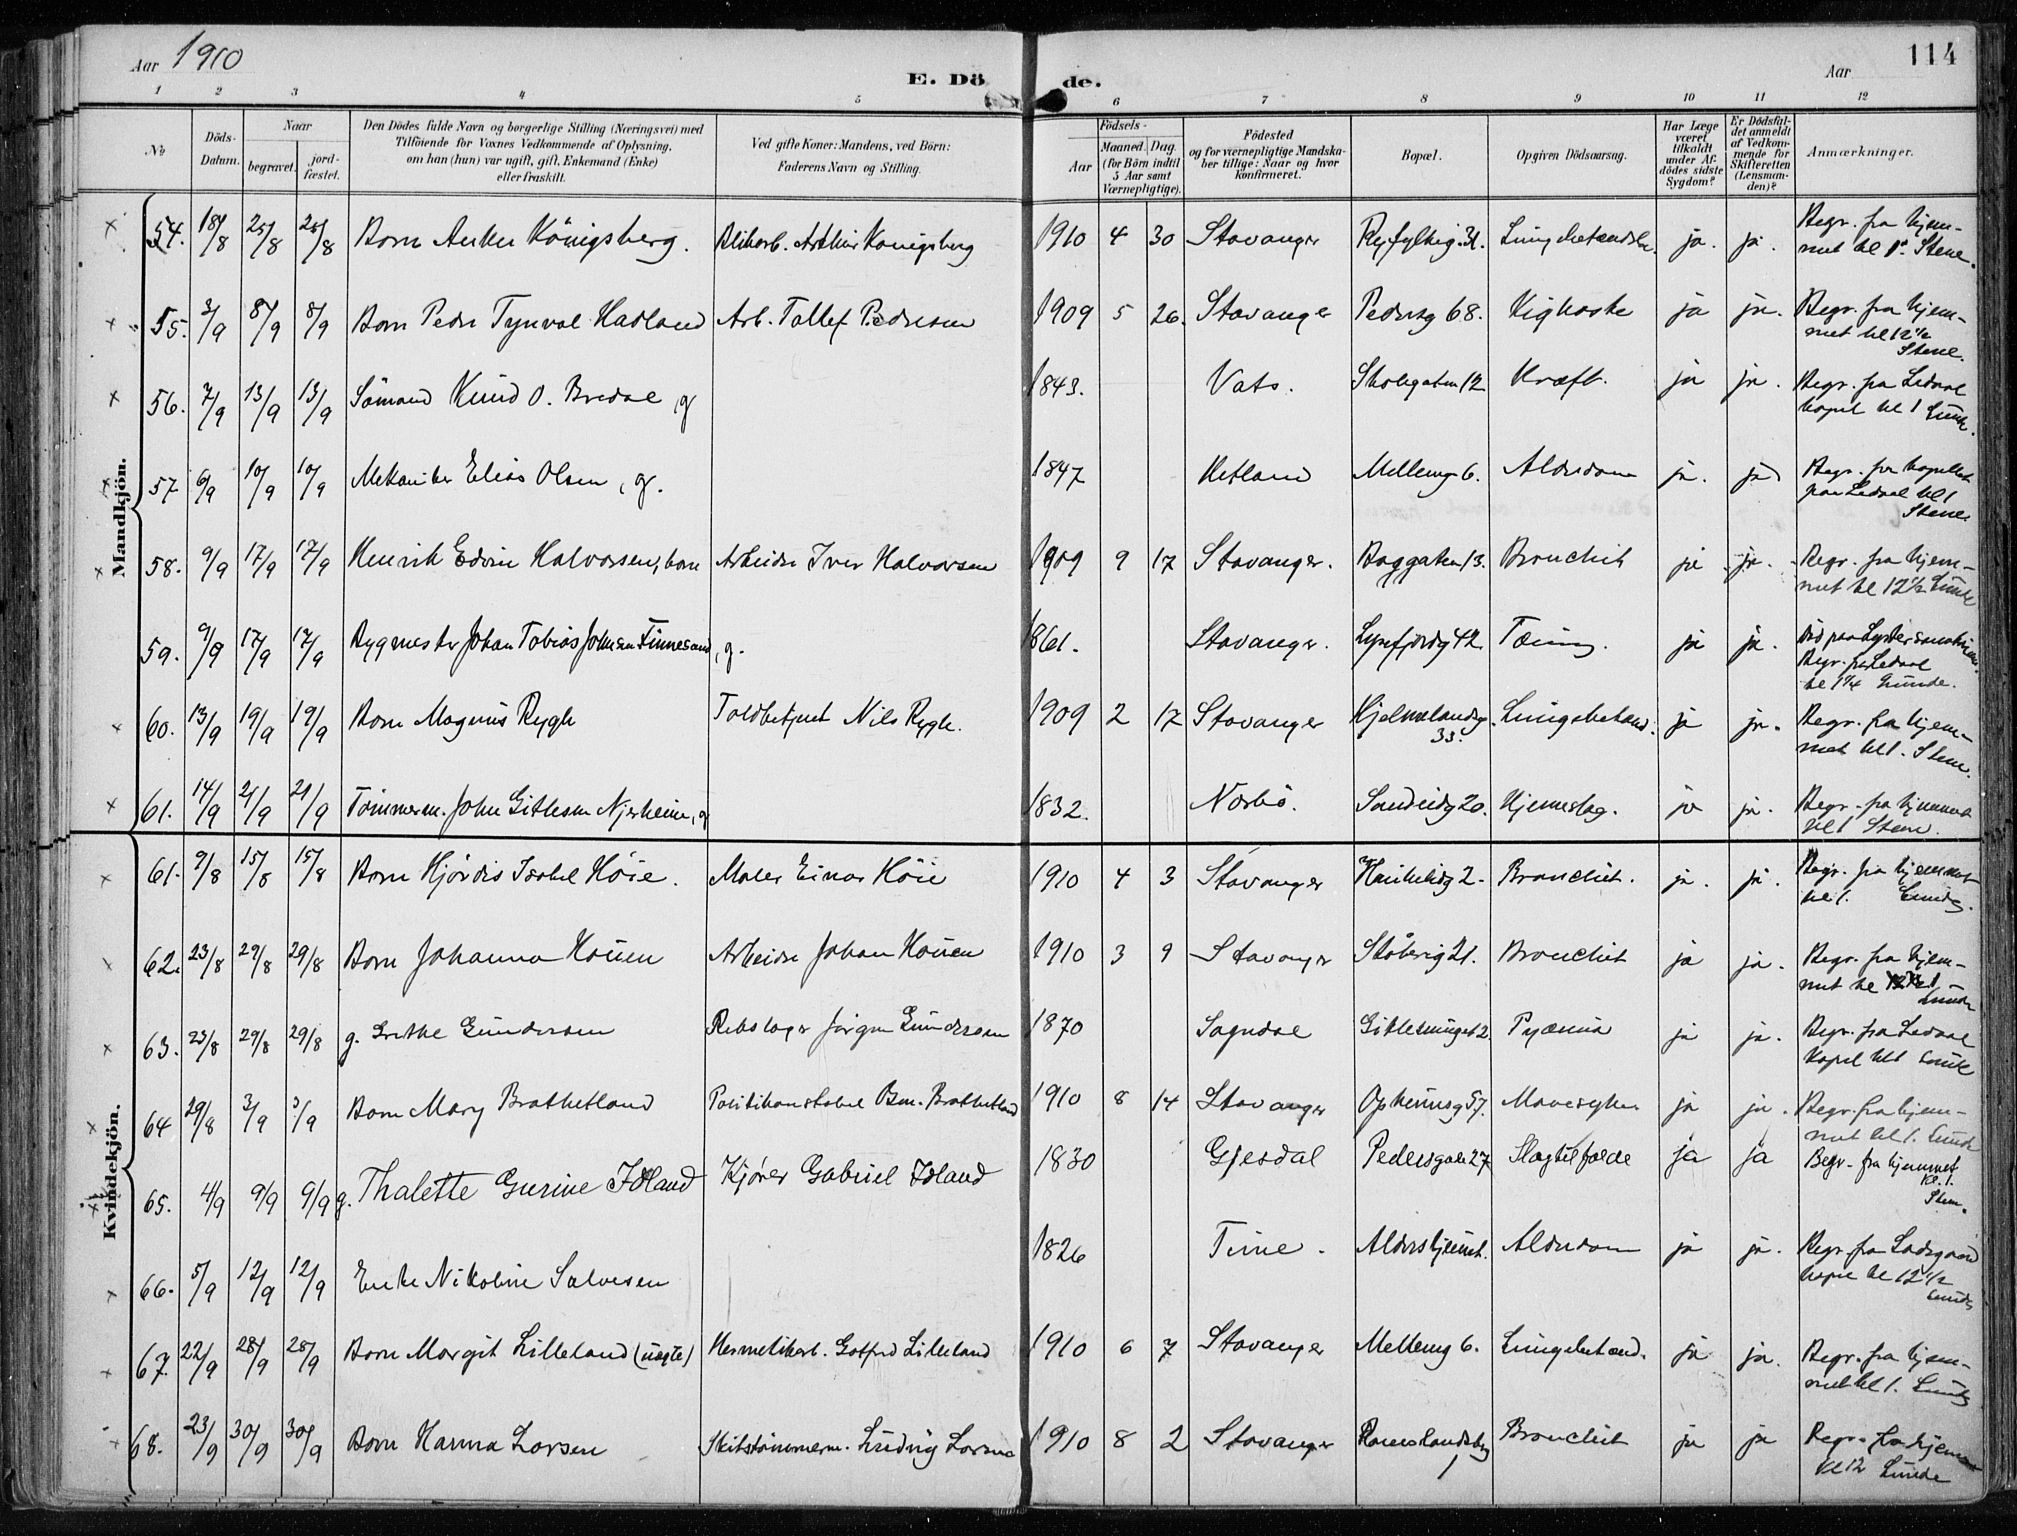 Aar 1910
E. Dö de.
Aar
114
1 2 3 4 5 6 7 8 9 10 11 12
No
Döds-Datum.
Naar
begravet. jord-fæstet.
Den Dödes fulde Navn og borgerlige Stilling (Næringsvei) med
Tilföiende for Voxnes Vedkommende af Oplysning,
om han (hun) var ugift, gift, Enkemand (Enke)
eller fraskilt.
Ved gifte Koner: Mandens, ved Börn:
Faderens Navn og Stilling.
Födsels-
Aar Maaned. Dag.
(for Börn indtil
5 Aar samt
Værnepligtige).
Födested
og for værnepligtige Mandska-
ber tillige: Naar og hvor
konfirmeret.
Bopæl.
Opgiven Dödsaarsag.
Har Læge
været
tilkaldt
under Af-
dödes sidste
Sygdom?
Er Dödsfal-
det anmeldt
af Vedkom-
mende for
Skifteretten
(Lensman-
den)?
Anmærkninger.
Mandkjön.
54. 18/8 25/8 25/8 Barn Anker Königsberg. Blikarb. Arthur Konigsberg 1910 4 30 Stavanger Ryfylkeg. 31. ja. ja. Begr. fra hjem-
met kl 1. Stene.
55. 3/9 8/9 8/9 Barn Peder Tynval Hadland Arb. Tollef Pedersen 1909 5 26. Stavanger Pedersg 68. Kighoste ja ja. Begr. fra hjem-
met kl 12 1/2
Stene.
56. 7/9 13/9 13/9 Sömand Knud O. Bredal, g 1843. Vats. Skolegaten 12 Kræft. ja ja. Begr. fra Ledaal
kapel kl 1 Lunde.
57 6/9 10/9 10/9 Mekaniker Elias Olsen, g. 1847 Hetland Mellemg 6. Alderdom ja. ja Begr. fra kapellet
paa Ledaal kl 1
Stene.
58. 9/9 17/9 17/9 Henrik Edvin Halvorsen, barn Arbeider Iver Halvorsen 1909 9 17 Stavanger. Baggaten 13. Bronchit ja ja. Begr. fra hjem-
met kl 12 1/2 Lunde
59. 9/9 17/9 17/9 Bygmester Johan Tobias Johnsen Finnesand, g. 1861. Stavanger. Lysefjordg 42 Tæring. ja ja. Död paa Lyster sanatorium.
Begr. fra Ledaal
kl 1 1/4 Lunde.
60. 13/9 19/9 19/9 Barn Magnus Rygh Toldbetjent Nils Rygh. 1909 2 17 Stavanger Hjelmelandsg. 33. Lungebetænd. ja ja. Begr. fra hjem-
met kl 1. Stene.
61. 14/9 21/9 21/9 Tömmerm. John Gitlesen Njærheim, g 1832. Nærbö. Sandeidg 20. Hjerneslag. ja ja. Begr. fra hjemmet
kl 1 Stene.
Kvindekjön.
61. 9/8 15/8 15/8 Barn Hjördis Isabel Höie. Maler Einar Höie 1910 4 3 Stavanger Haukelidg 2. Bronchit. ja. ja. Begr. fra hjemmet
kl 1. Lunde.
62. 23/8 29/8 29/8 Barn Johanna Hauen Arbeider Johan Hauen 1910 3 9 Stavanger Stöberig 21. Bronchit ja ja. Begr. fra hjem-
met kl 1
Lunde
63. 23/8 29/8 29/8 g. Grethe Gundersen Rebslager Jörgen Gundersen 1870 Sogndal 2. Pyæmia ja ja. Begr. fra Ledaal
kapel kl 1 Lunde
64 29/8 3/9 3/9 Barn Mary Brathetland Politikonstabel Brathetland 1910 8 14 Stavanger Opheimsg 57. Mavesyke ja ja. Begr. fra hjem-
met kl 1. Lunde
65. 4/9 9/9 9/9 g. Thalette Gurine Idland Kjörer Gabriel Idland 1830 Gjesdal Pedersgate 27 Slagtilfælde ja ja Begr. fra hjemmet
kl. 1.
Stene.
66. 5/9 12/9 12/9 Enke Nikoline Salvesen 1826 Time. Aldershjemmet. Alderdom ja ja. Begr. fra Ladegaard
kapel kl 12 1/2
Lunde
67. 22/9 28/9 28/9 Barn Margit Lilleland (uægte) Hermetikarb. Gotfred Lilleland 1910 6 7 Stavanger Mellemg 6. Lungebetænd. ja ja. Begr. fra hjem-
met kl 1. Lunde
68. 23/9 30/9 30/9 Barn Hanna Larsen Skibstömmerm. Ludvig Larsen 1910 8 2 Stavanger Bronchit ja ja Begr. fra hjemmet
kl 12 Lunde